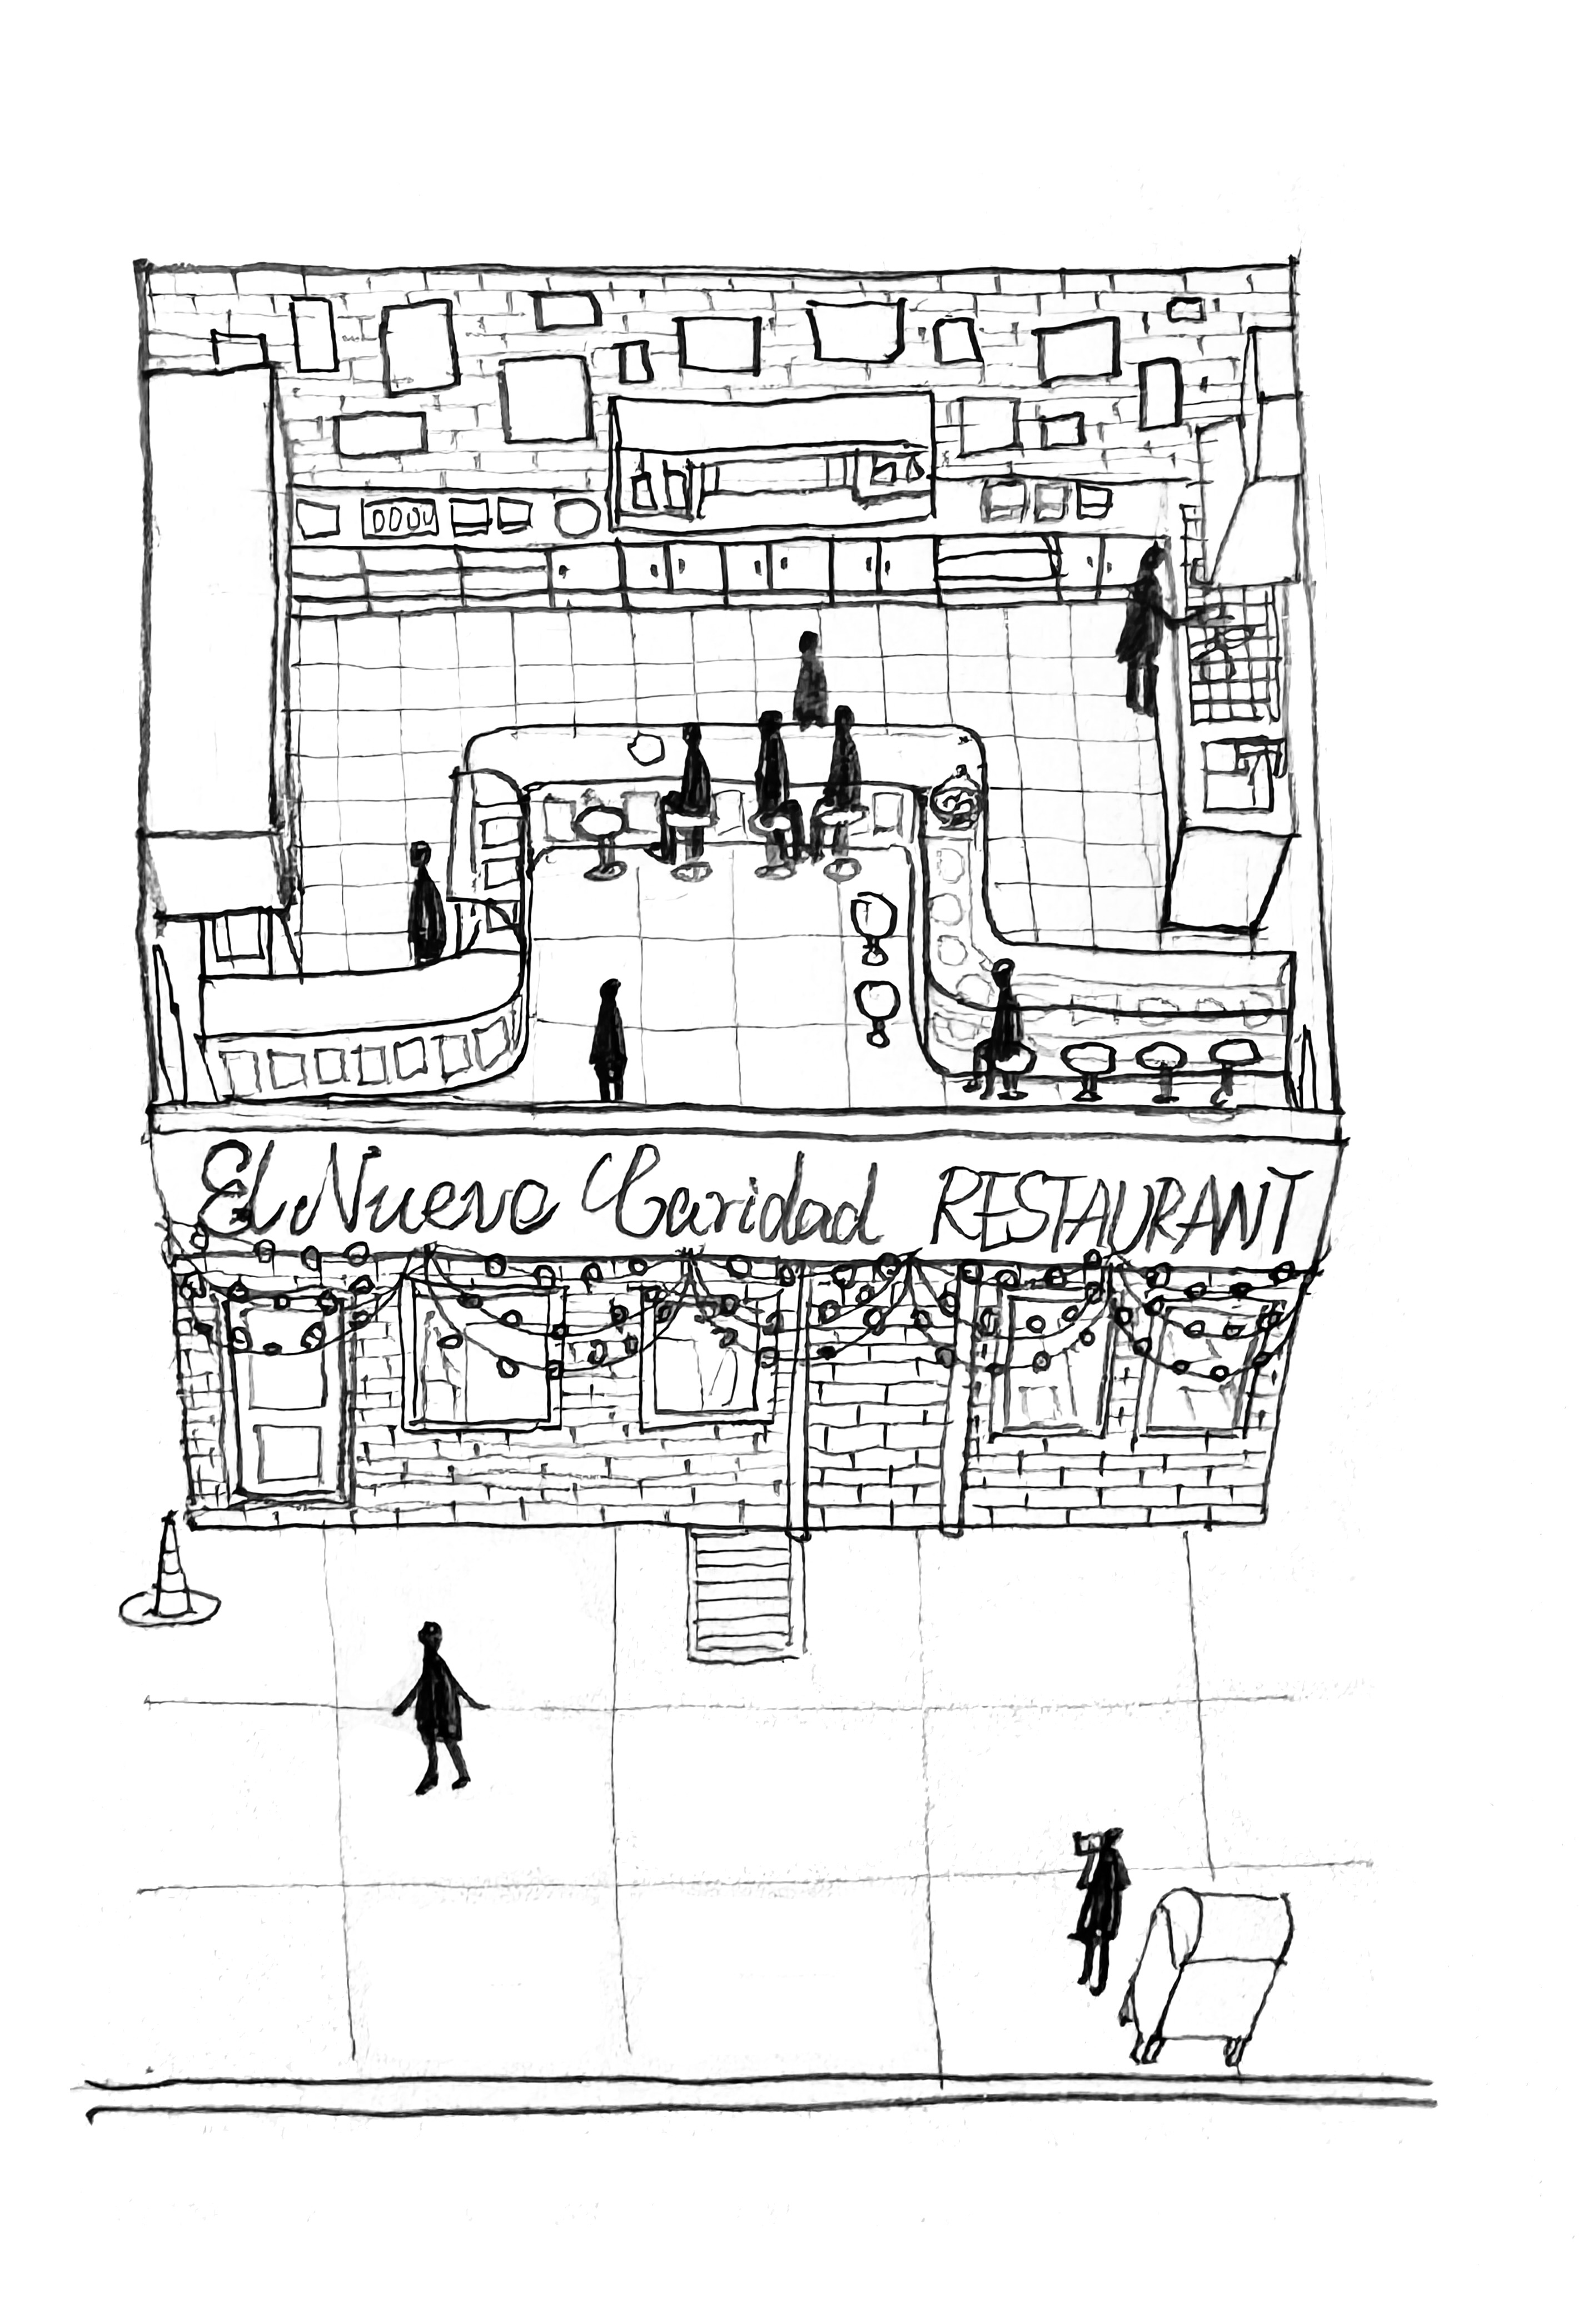 El Nuevo Caridad RESTAURANT